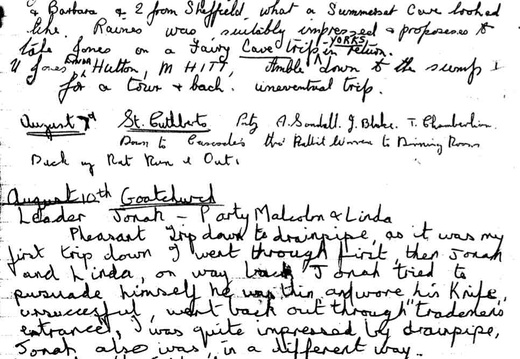 & Barbara & 2 from Sheffield, what a Summerset Cave looked
like. Raines was suitably impressed & proposes to
take Jones on a Fairy Cave trip in YORKS return.
Jones, Hutton, M HITT, Amble down to the sump
for a tour & back. uneventual trip.
August 7th St. Cuthberts Pete A. Sandall. J. Blake. T. Chamberlin.
Down to Cascades thro Rabbit Warren to Dining Room
Back up Rat Run & Out.
August 10th Goatchurch
Leader Jonah - Party Malcolm & Linda
Pleasant trip down to drainpipe, as it was my
first trip down I went through first, then Jonah
and Linda, on way back Jonah tried to
pursuade himself he was thin, and wore his Knife,
unsuccessful, went back out through "tradesmen's
entrance", I was quite impressed by drainpipe,
Jonah also was in a different way.